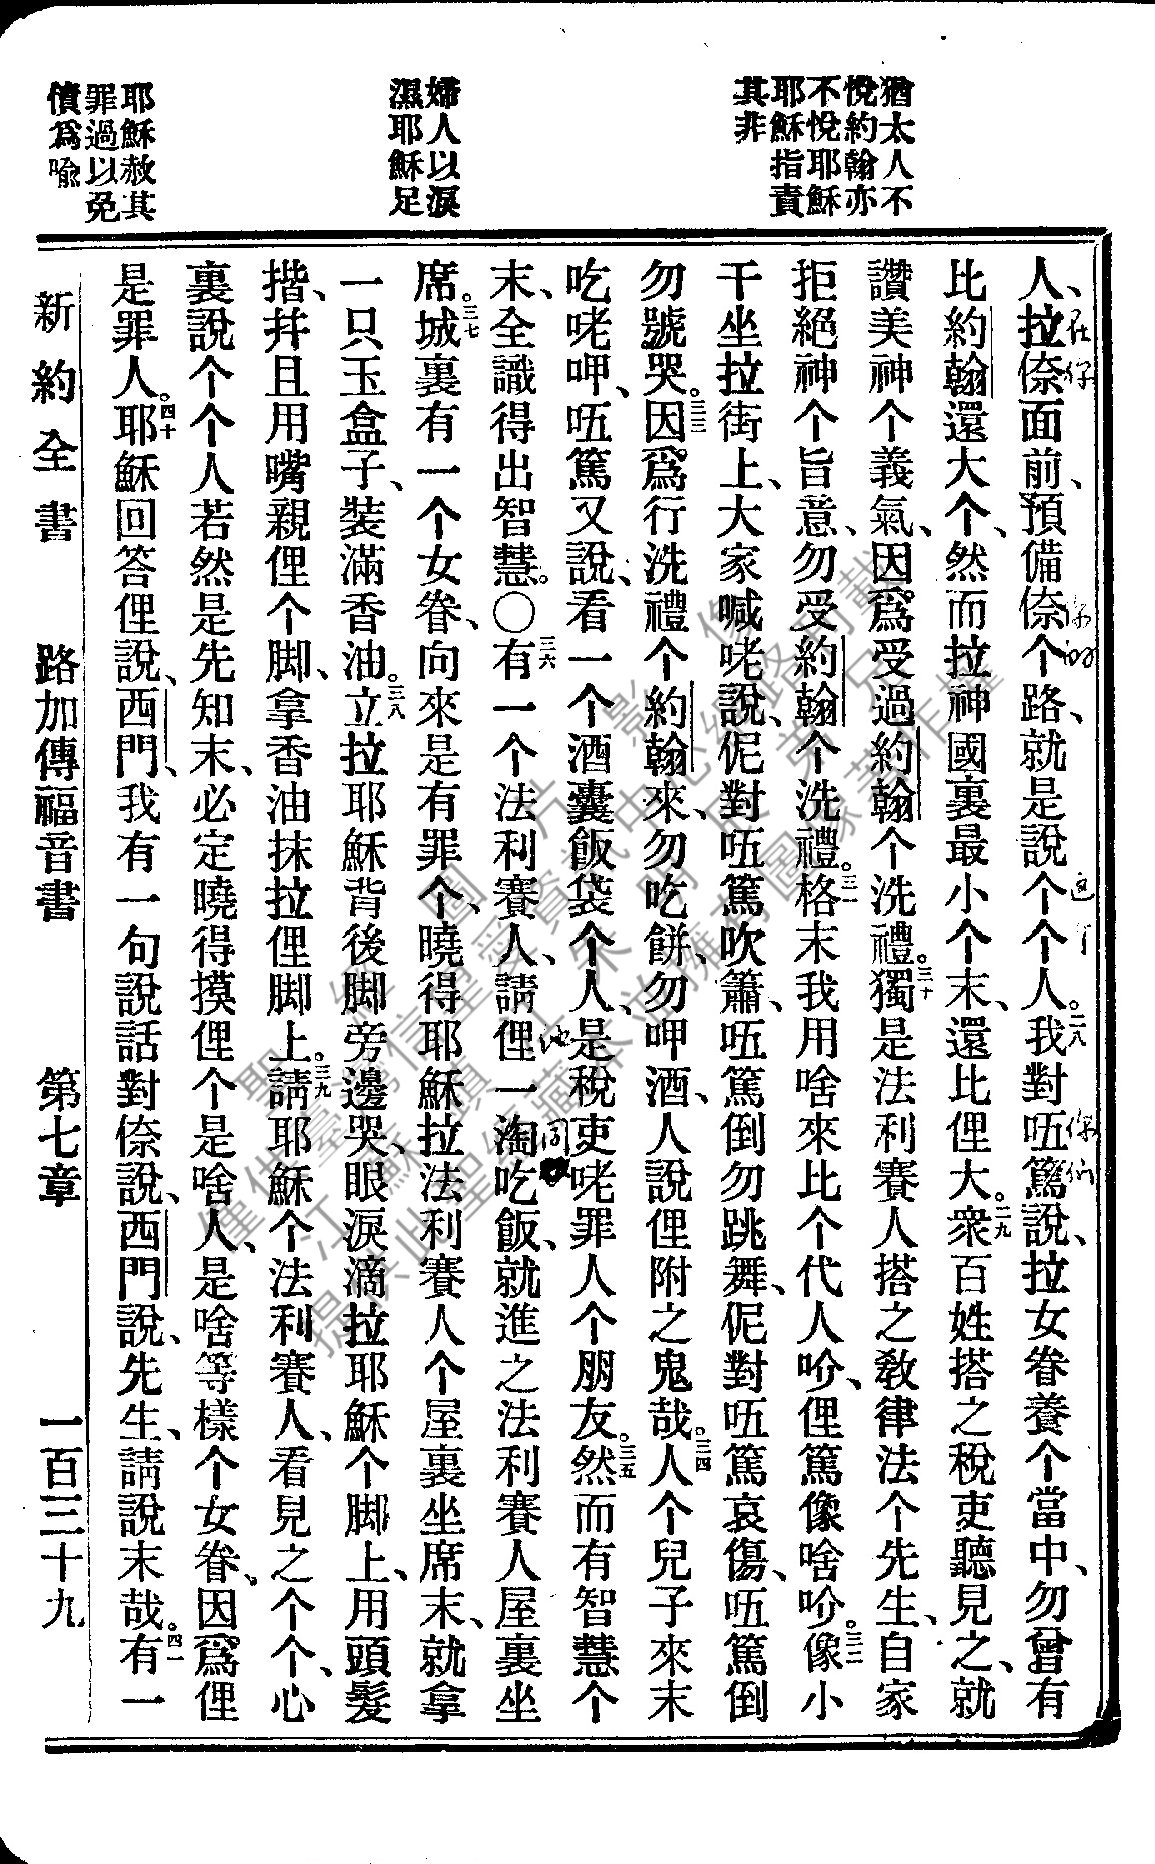 猶太人不
悅約翰亦
不悅耶穌
耶穌指責
其非
婦人以淚
濕耶穌足
耶穌赦其
罪過以免
債爲喩
人、拉㑚面前、預備㑚个路、就是說个个人。二八我對㕶篤說、拉女眷養个當中、勿曾有
比約翰還大个、然而拉神國裏最小个末、還比俚大。二九衆百姓搭之稅吏聽見之、就
讚美神个義氣、因爲受過約翰个洗禮。三十獨是法利賽人搭之敎律法个先生、自家
拒絕神个旨意、勿受約翰个洗禮。三一格末我用啥來比个代人吤、俚篤像啥吤。三二像小
干坐拉街上、大家喊咾說、伲對㕶篤吹簫、㕶篤倒勿跳舞、伲對㕶篤哀傷、㕶篤倒
勿號哭。三三因爲行洗禮个約翰來、勿吃餅、勿呷酒、人說俚附之鬼哉。三四人个兒子來末
吃咾呷、㕶篤又說、看一个酒囊飯袋个人、是稅吏咾罪人个朋友。三五然而有智慧个
末、全識得出智慧。〇三六有一个法利賽人、請俚一淘吃飯、就進之法利賽人屋裏坐
席。三七城裏有一个女眷、向來是有罪个、曉得耶穌拉法利賽人个屋裏坐席末、就拿
一只玉盒子、裝滿香油。三八立拉耶穌背後脚旁邊哭、眼淚滴拉耶穌个脚上、用頭髮
揩、幷且用嘴親俚个脚、拿香油抹拉俚脚上。三九請耶穌个法利賽人、看見之个个、心
裏說个个人若然是先知末、必定曉得摸俚个是啥人、是啥等樣个女眷、因爲俚
是罪人。四十耶穌回答俚說、西門、我有一句說話對㑚說、西門說、先生、請說末哉。四一有一
新約全書 路加傳福音書 第七章 一百三十九
在你
你的
這个
你們
他
同